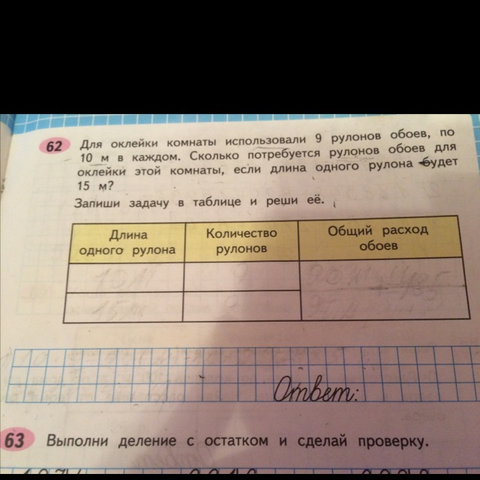 62 Для оклейки комнаты использовали 9 рулонов обоев, по
10 м в каждом. Сколько потребуется рулонов обоев для
оклейки этой комнаты, если длина одного рулона будет
15 м?
Запиши задачу в таблице и реши её.
Длина одного рулона
Количество рулонов
Общий расход обоев
10 м
15 м
Ответ:
63 Выполни деление с остатком и сделай проверку.